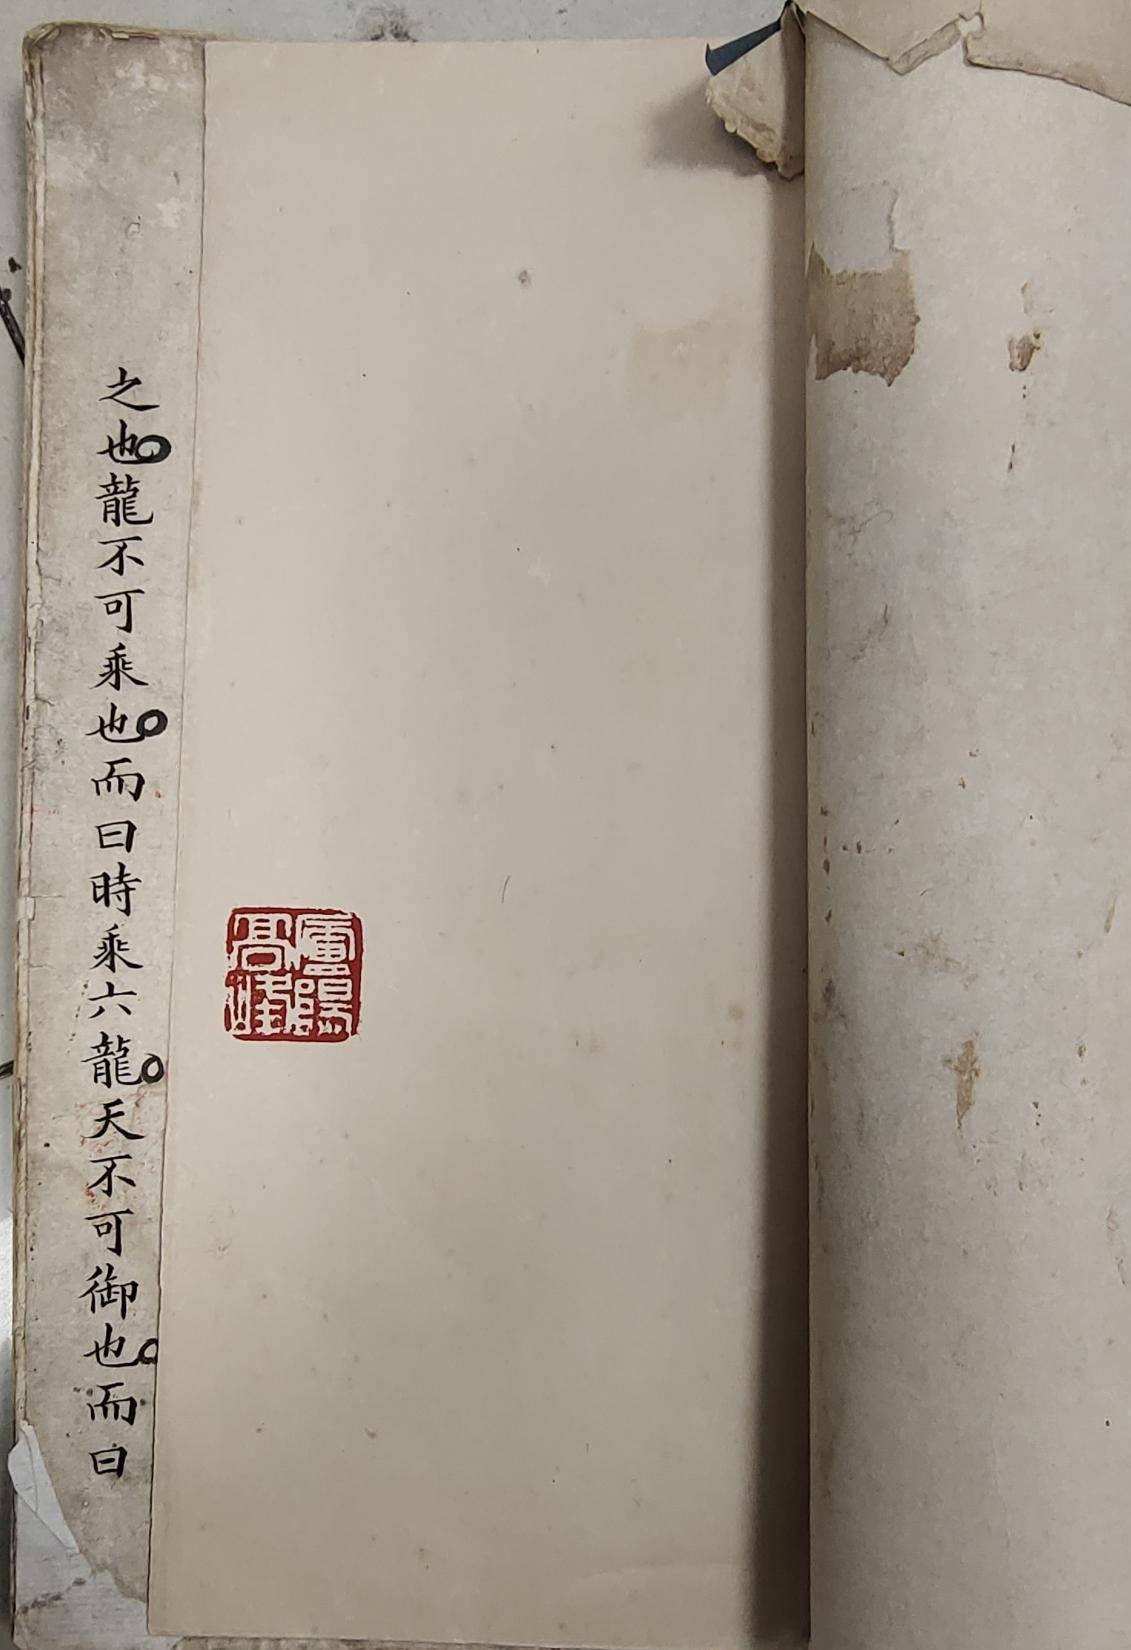 陽
高峰
之也龍不可乘也而曰時乘六龍天不可御也而曰